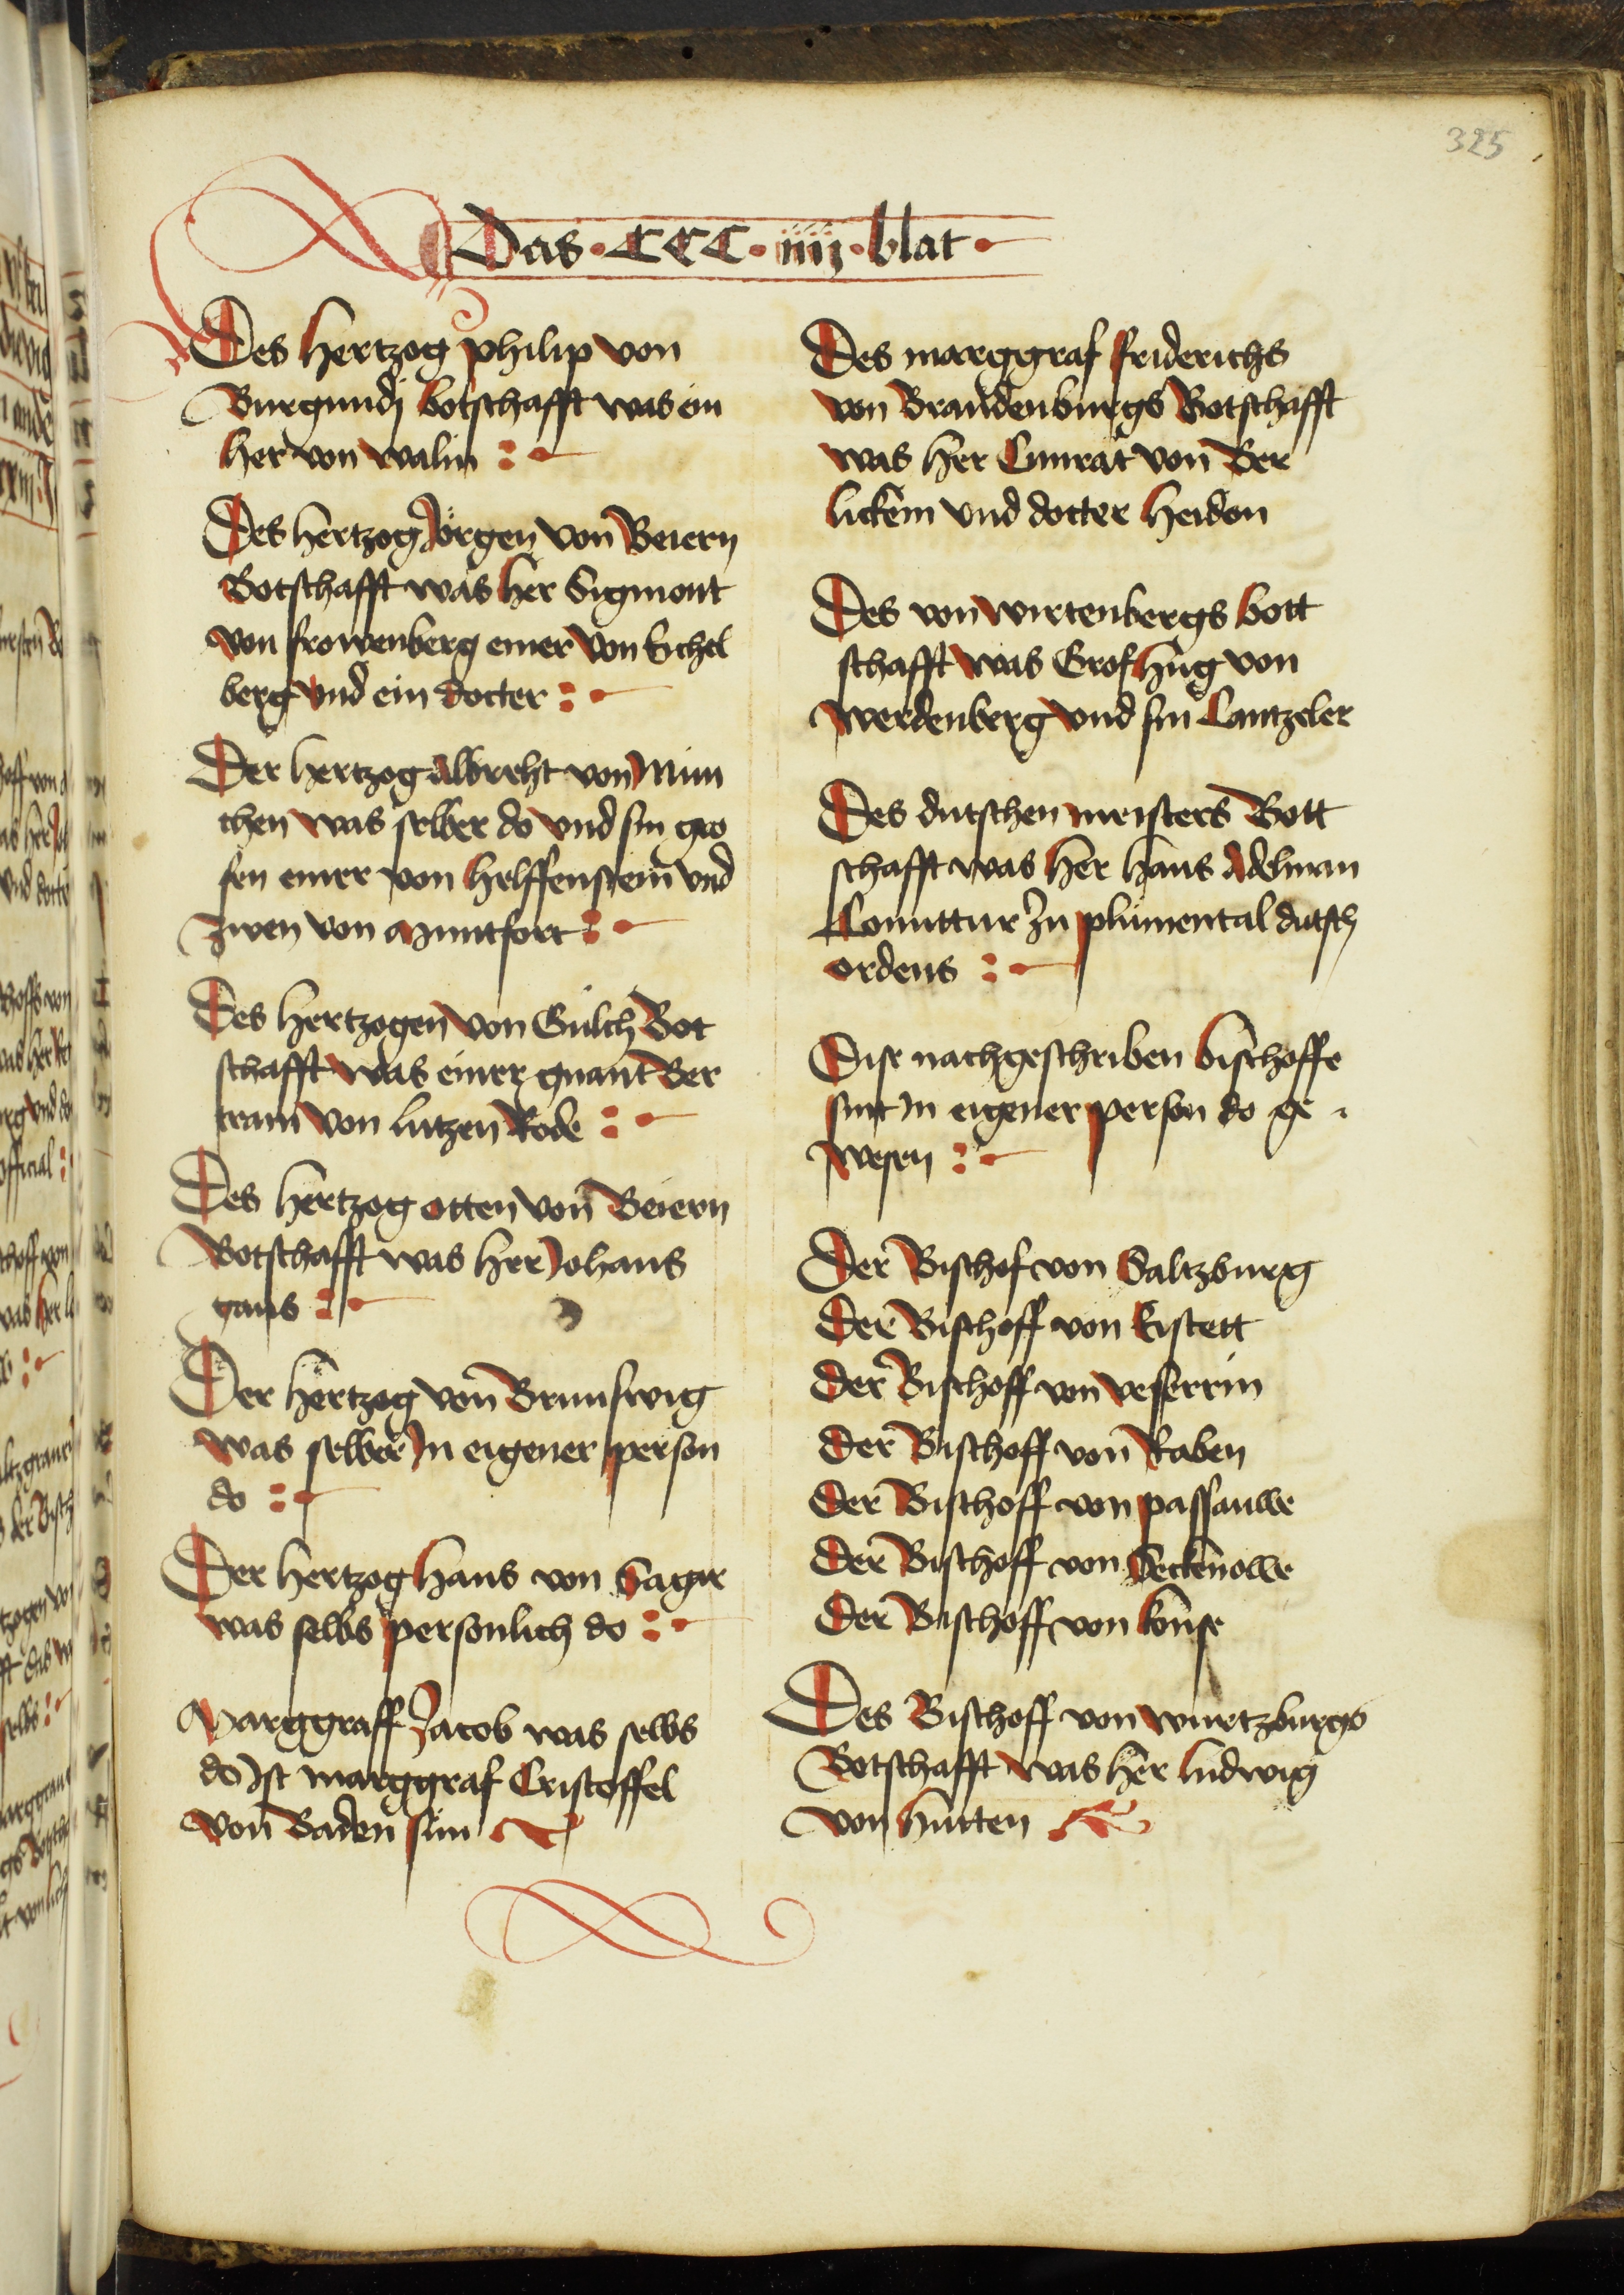 325
Das · CCC · iiij · blat ·
Des hertzog philip von
Burgundj botschafft was ein
her von walin
Des hertzog Jörgen von Beiern
Botschafft was her Sigmont
von frowenberg einer von Eichel
berg vnd ein docter
Der hertzog albrecht von Mun
chen was selber do vnd sin gro
fen einer von helffenstein vnd
zwen von Muntfort
Des hertzogen von Gulch Bot
schafft was einer gnant Ber
tram von lutzen Rode
Des hertzog otten von Beiern
Botschafft was her Johans
gans
Der hertzog von Brunswig
was selber Jn eigener person
do
Der hertzog hans von Sager
was selbs personlich do
Marggraff Jacob was selbs
do Jst marggraf Cristoffel
von Baden sun
Des marggraf friderichs
von Brandenburgs Botschafft
was her Cunrat von Ber
lickem vnd docter heiden
Des von wirtenbergs bott
schafft was Grof hug von
werdenberg vnd sin Cantzeler
Des dutschen meisters Bott
schafft was her hans Adelman
Comittur zu plumental dutsch
ordens
Dise nachgeschriben bischoffe
sint Jn eigener person do ge
wesen
Der Bischof von Saltzburg
Der Bischoff von Eistett
Der Bischoff von vesserrin
Der Bischoff von Raben
Der Bischoff von passauwe
Der Bischoff von Seckenowe
Der Bischoff von konse
Des Bischoff von wurtzburgs
Botschafft was her ludwig
von hutten